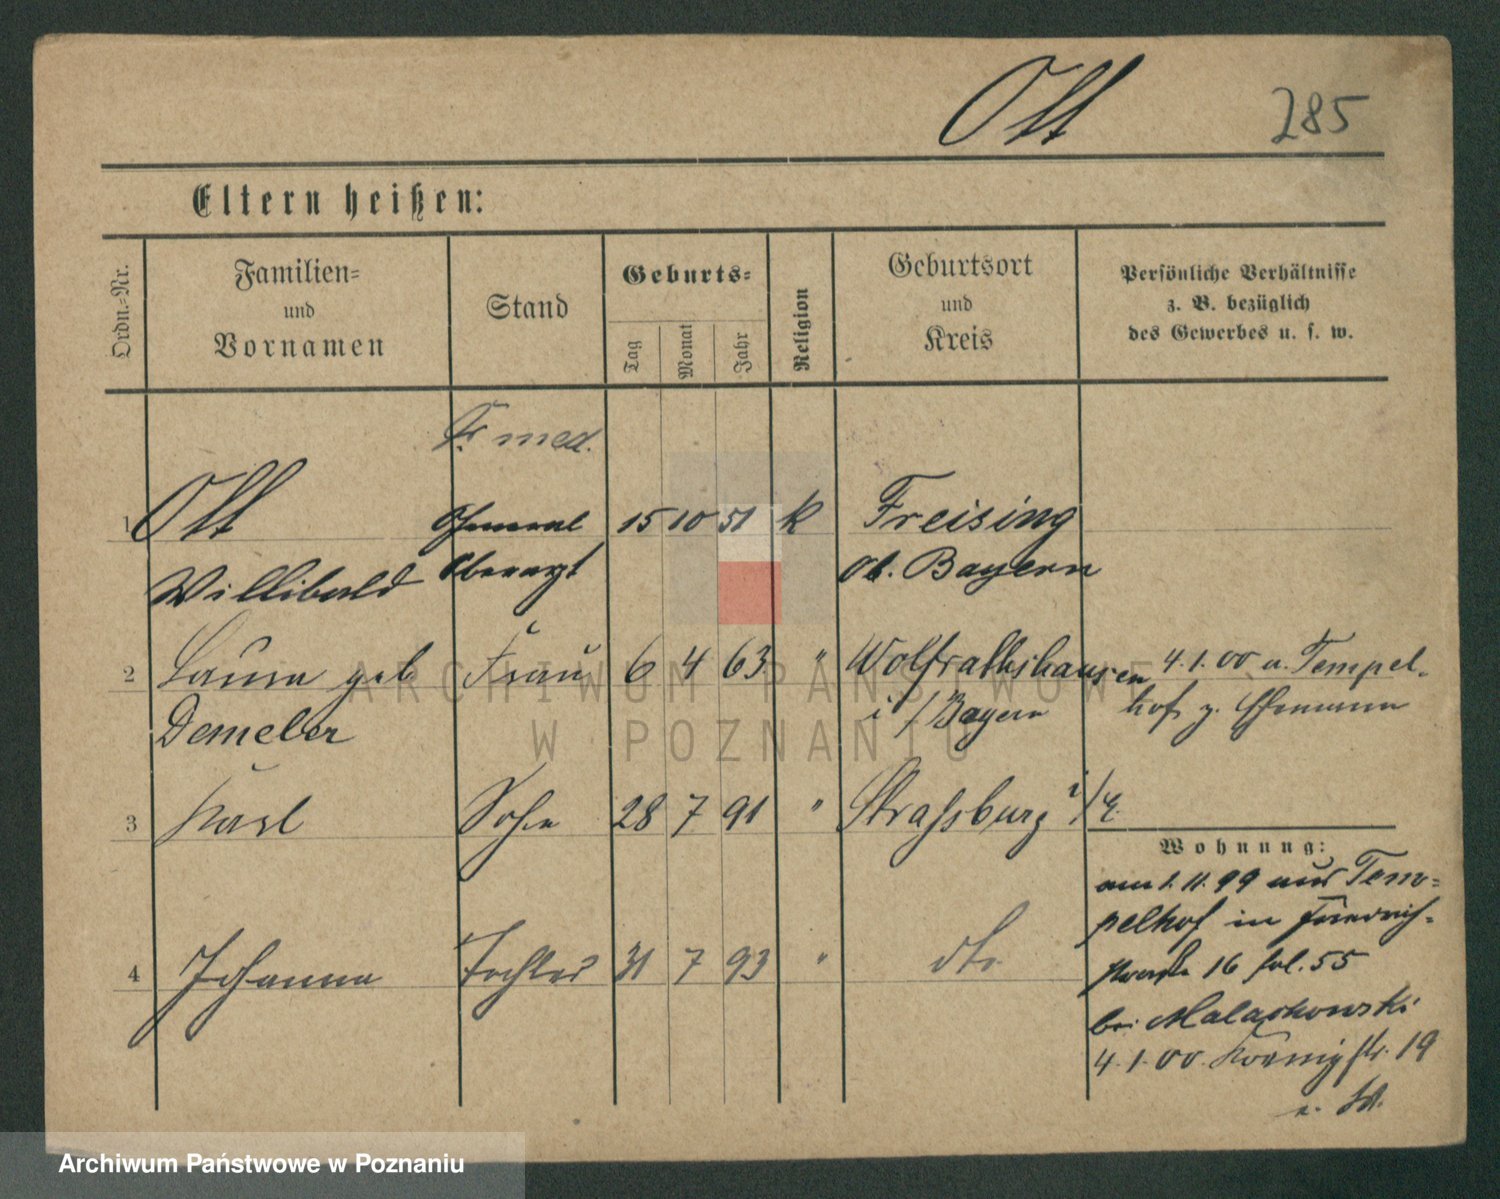 Ott 285
Eltern heißen:
Ordn.-Nr.
Familien-
und
Vornamen
Stand
Geburts-
Tag
Monat
Jahr
Religion
Geburtsort
und
Kreis
Persönliche Verhältnisse
z. B. bezüglich
des Gewerbes u. s. w.
Dr med.
1 Ott General 15 10 51 k Freising
Willibald Oberarzt Ob. Bayern
2 Laura geb Frau 6 4 63 " Wolfrathshausen 4.1.00 a. Tempel-
Demeler i/Bayern hof z. Ehemann
3 Karl Sohn 28 7 91 " Strassburg i/E.
Wohnung:
am 1.11.99 aus Tem-
pelhof in Friedrich-
4 Johanna Tochter 31 7 93 " dto. strasse 16 fol. 55
bei Malaskowski
4.1.00. Koenigstr. 19
ARCHIWUM PAŃSTWOWE
W POZNANIU
Archiwum Państwowe w Poznaniu